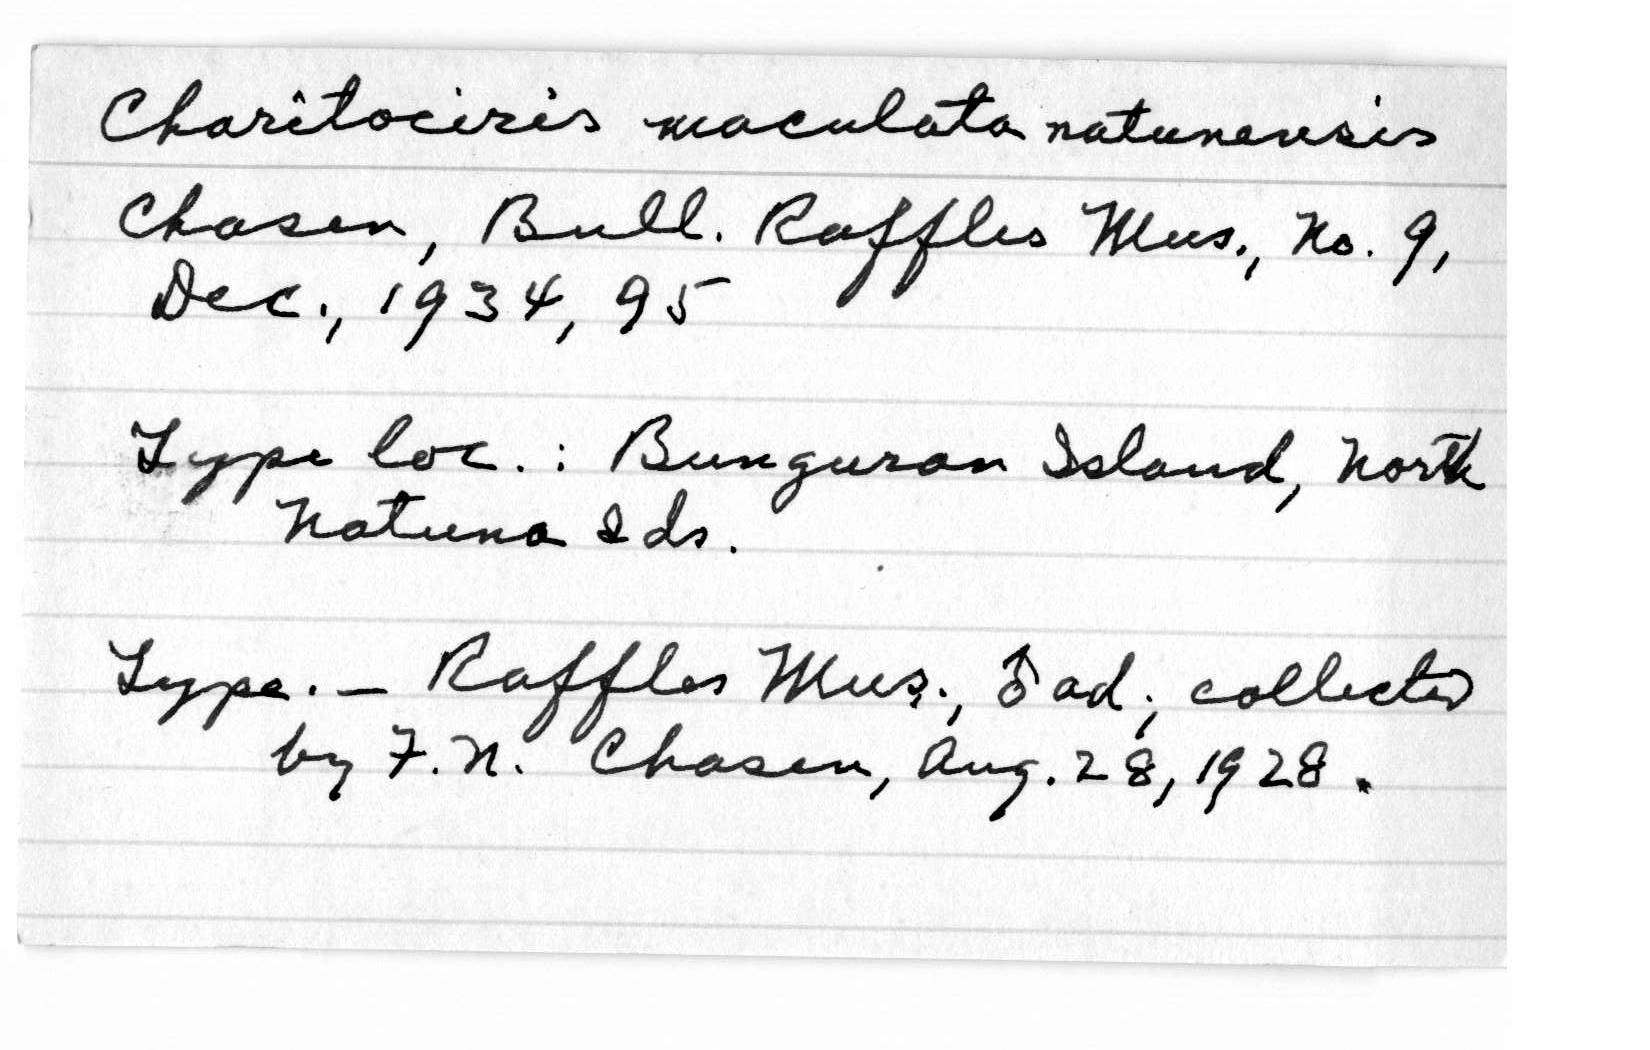 Charitociris maculata natunensis
Chasen, Bull. Raffles Mus., No. 9,
Dec., 1934, 95
Type loc. : Bunguran Island, North
Natuna Ids.
Type. — Raffles Mus., ♂ ad; collected
by F. N. Chasen, Aug. 28, 1928.